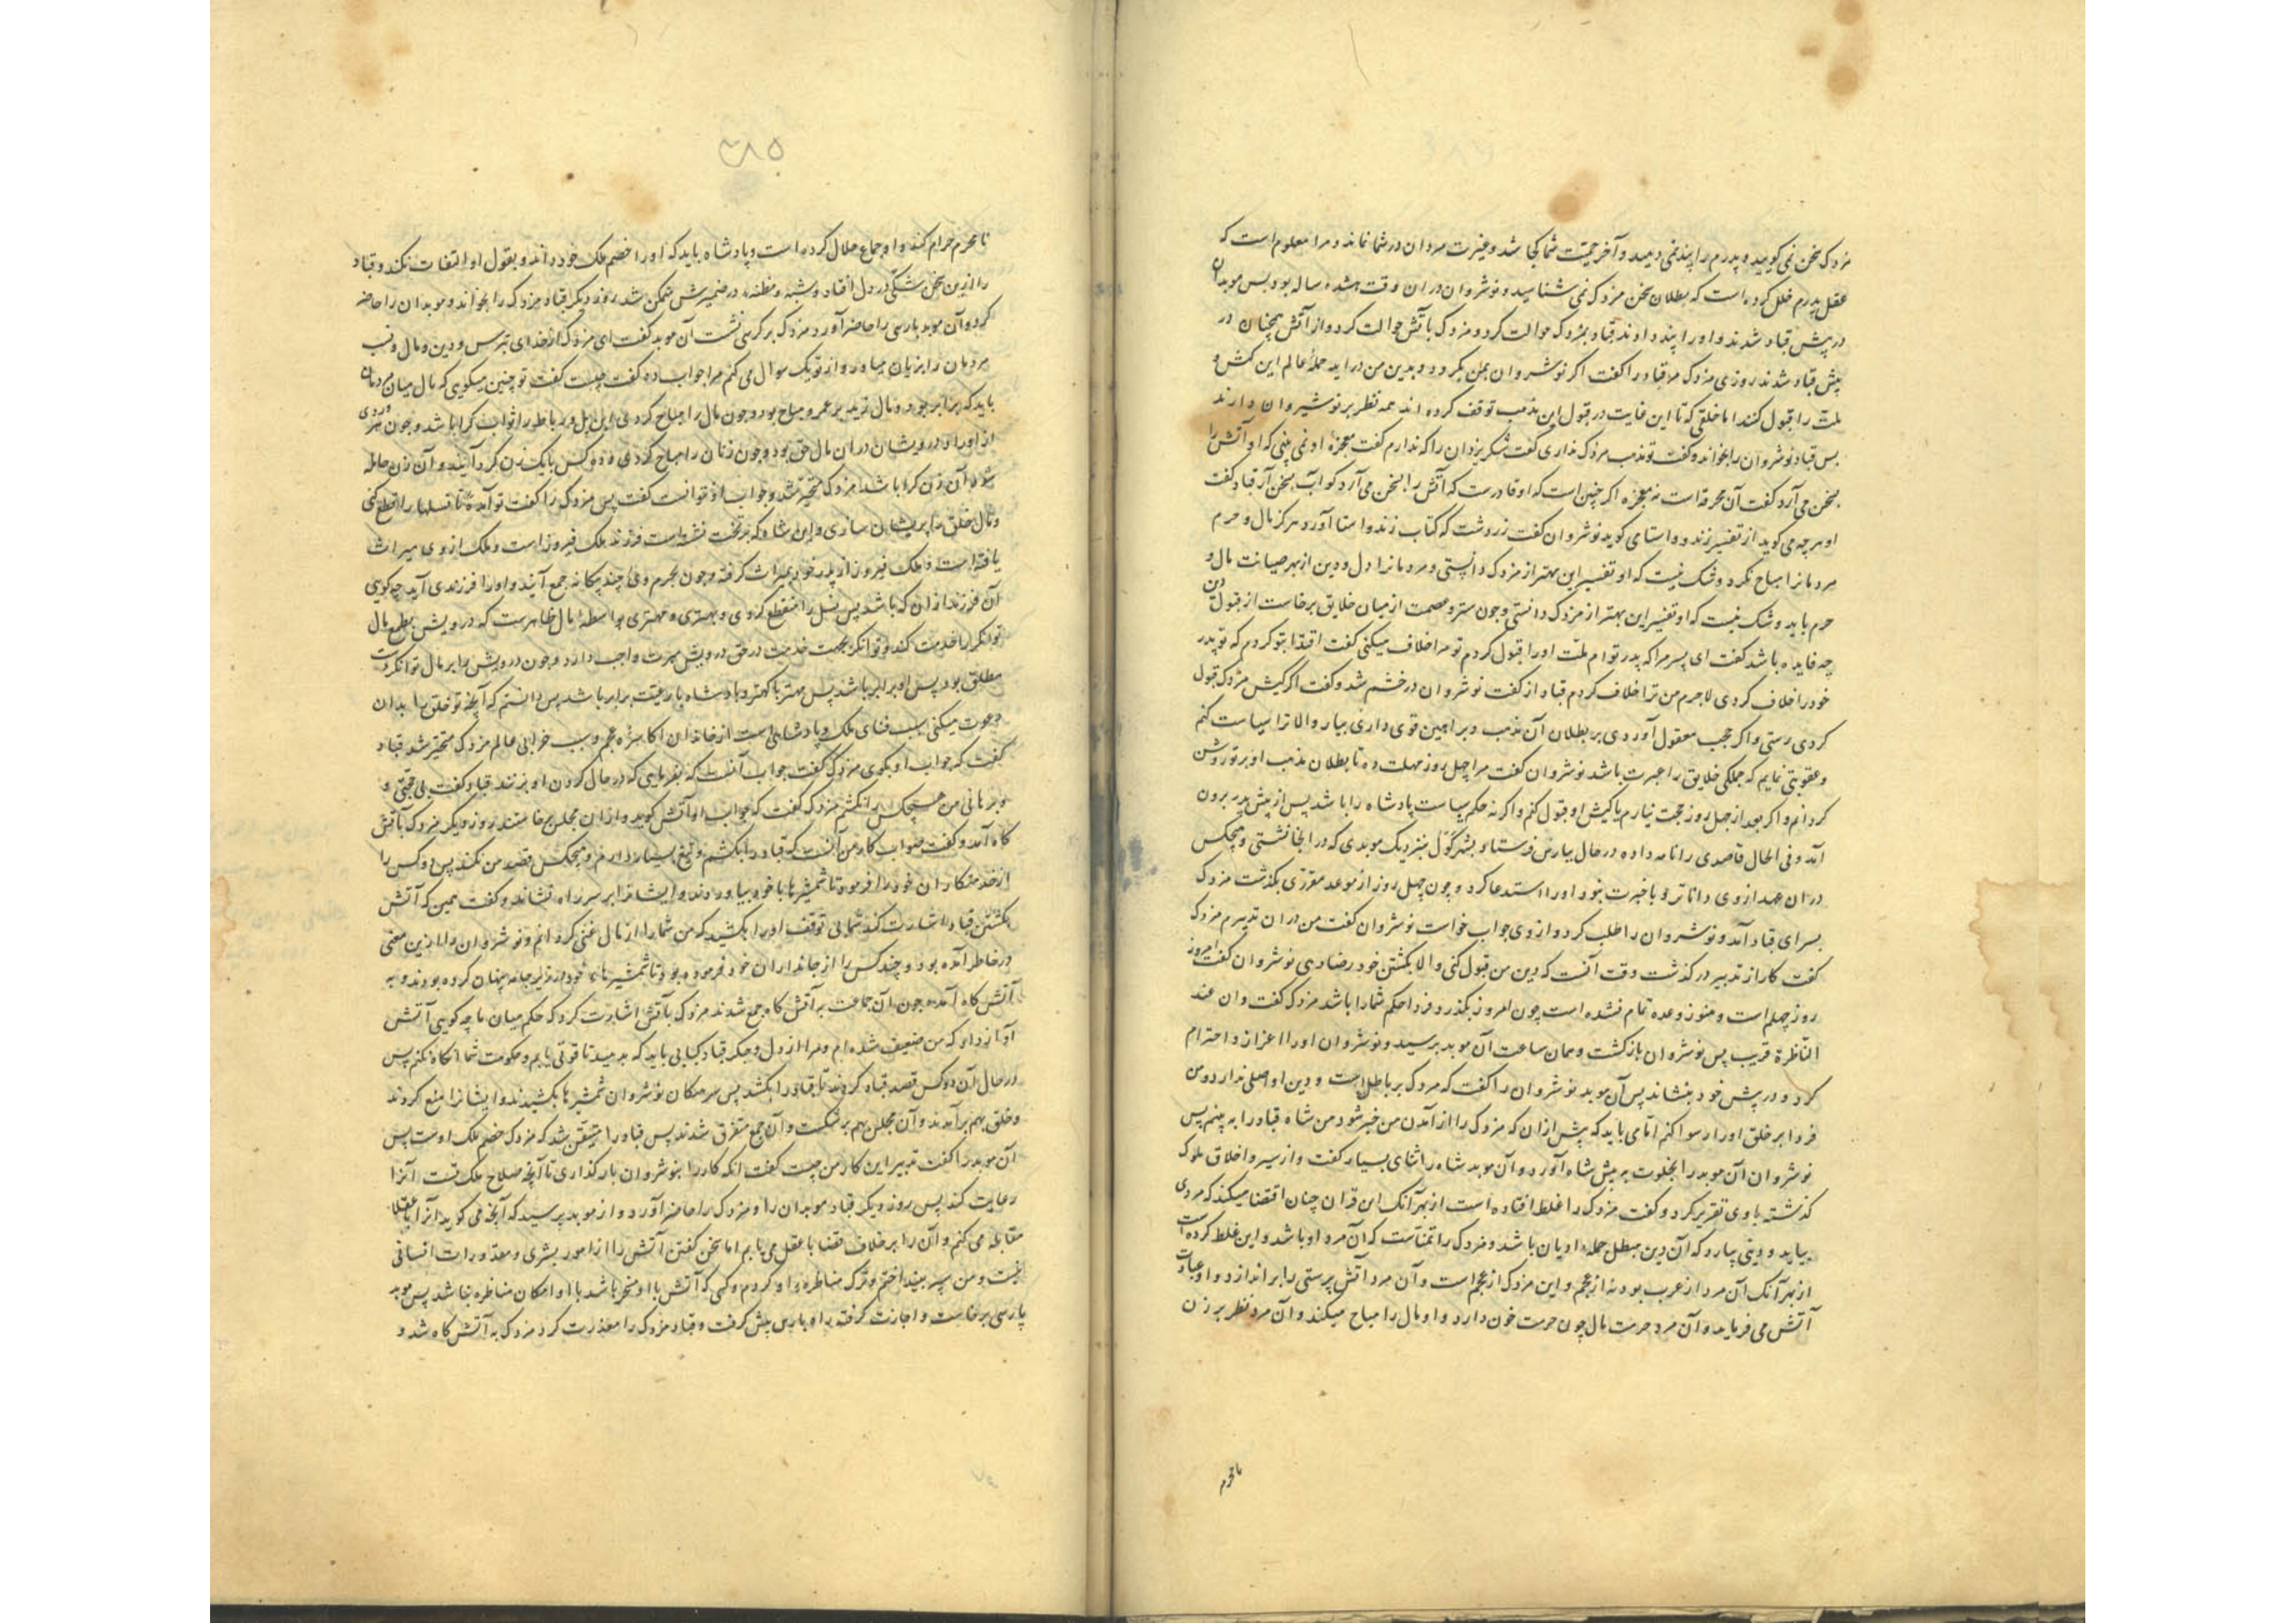 مزدک سخن نمی کویید و پدرم را پند نمی دهید و آخر حمیت شما کجا شد و غیرت مردان در شما نماند و مرا معلوم است که
عقل پدرم خلل کرده است که بطلان سخن مزدک نمی شناسید و نوشروان در ان وقت هشده ساله بود بس موبدان
در پیش قباد شدند و او را پند دادند قباد بمزدک حوالت کرد و مزدک باتش حوالت کرد و از آتش همچنان در
پیش قباد شدند روزی مزدک مر قباد را کفت اکر نوشروان بمن بکرود و بدین من در اید جملهٔ عالم این کیش و
ملت را قبول کنند اما خلقی که تا این غایت در قبول این مذهب توقف کرده اند همه نظر بر نوشیروان دارند
بس قباد نوشروان را بخواند و کفت تو مذهب مزدک نداری کفت شکر یزدان را که ندارم کفت معجزهٔ او نمی بینی که او آتش را
بسخن می آرد کفت آن مخرقه است نه معجزه اکر چنین است که او قادرست که آتش را بسخن می آرد کو اب بسخن آر قباد کفت
او هرچه می کوید از تفسیر زند و واستا می کوید نوشروان کفت زردشت که کتاب زند و استا آورد هرکز مال و حرم
مردمانرا مباح نکرد و شک نیست که او تفسیر این بهتر از مزدک دانستی و مردمانرا دل و دین از بهر صیانت مال و
حرم باید و شک نیست که او تفسیر این بهتر از مزدک دانستی و چون ستر و عصمت از میان خلایق برخاست از قبول دین
چه فایده باشد کفت ای پسر مرا که پدر توام ملت او را قبول کردم تو مرا خلاف میکنی کفت اقتدا بتو کردم که تو پدر
خود را خلاف کردی لاجرم من ترا خلاف کردم قباد از کفت نوشروان در خشم شد و کفت اکر کیش مزدک قبول
کردی رستی و اکر حجب معقول آوردی بر بطلان آن مذهب و براهین قوی داری بیار والا ترا سیاست کنم
و عقوبتی نمایم که جملکی خلایق را عبرت باشد نوشروان کفت مرا چهل روز مهلت ده تا بطلان مذهب او بر تو روشن
کردانم و اکر بعد از چهل روز حجت نیارم یا کیش او قبول کنم و اکر نه حکم سیاست پادشاه را باشد پس از پیش پدر برون
آمد و فی الحال قاصدی را نامه داده در حال بپارس فرستاد بشهر کول بنزدیک موبدی که در انجا نشستی و هیچکس
در ان عهد از وی داناتر و با خبرت نبود او را استدعا کرد و چون چهل روز از موعد مقرری بکذشت مزدک
بسرای قباد آمد و نوشروان را طلب کرد و از وی جواب خواست نوشروان کفت من در ان تدبیرم مزدک
کفت کار از تدبیر درکذشت وقت آنست که دین من قبول کنی والا بکشتن خود رضا دهی نوشروان کفت امروز
روز چهلم است و هنوز وعده تمام نشده است چون امروز بکذرد فردا حکم شما را باشد مزدک کفت وان غد
الناظرة قریب پس نوشروان بازکشت و همان ساعت آن موبد برسید و نوشروان او را اعزاز و احترام
کرد و در پیش خود بنشاند پس آن موبد نوشروان را کفت که مزدک بر باطل است و دین او اصلی ندارد و من
فردا بر خلق او را رسوا کنم اما می باید که پیش از ان که مزدک را از آمدن من خبر شود من شاه قباد را به بینم پس
نوشروان آن موبد را بخلوت به پیش شاه آورد و آن موبد شاه را ثنای بسیار کفت و از سیر و اخلاق ملوک
کذشته باوی تقریر کرد و کفت مزدک را غلط افتاده است از بهر آنک این قران چنان اقتضا میکند که مردی
بیاید و دینی بیارد که آن دین مبطل جملهٔ ادیان باشد و مزدک را تمناست که آن مرد او باشد و این غلط کرده است
از بهر آنک آن مرد از عرب بود نه از عجم و این مزدک از عجم است و آن مرد آتش پرستی را براندازد و او عبادت
آتش می فرماید و آن مرد حرمت مال چون حرمت خون دارد و او مال را مباح میکند و آن مرد نظر بر زن
نامحرم
۲۸۵
نامحرم حرام کند و او جماع حلال کرده است و پادشاه باید که او را خصم ملک خود داند و بقول او التفات نکند و قباد
را از ین سخن شکی در دل افتاد و شبه و مظنه در ضمیرش متمکن شد روز دیکر قباد مزدک را بخواند و موبدان را حاضر
کرد و آن موبد پارسی را حاضر آورد مزدک بر کرسی نشست آن موبد کفت ای مزدک از خدای بترس و دین و مال و نسب
مردمان را بزیان میاور و از تو یک سوال می کنم مرا جواب ده کفت چیست کفت تو چنین میکویی که مال میان مردمان
باید که برابر بود و مال زید بر عمرو مباح بود و چون مال را مباح کردی این پل و رباط را ثواب کرا باشد و چون مزدی
از او را و درویشان در ان مال حق بود و چون زنان را مباح کردی و ده کس با یک زن کرد آیند و آن زن حامله
شود آن زن کرا باشد مزدک متحیر شد و جواب او نتوانست کفت پس مزدک را کفت تو آمدهٔ تا نسلها را قطع کنی
و مال خلق را پریشان سازی و این شاه که بر تخت نشسته است فرزند ملک فیروز است و ملک از وی میراث
یافته است و ملک فیروز از پدر خود بمیراث کرفته و چون بحرم وی چند بیکانه جمع آیند و او را فرزندی آید چه کویی
آن فرزند از ان که باشد پس نسل را منقطع کردی و بهتری و مهتری بواسطهٔ مال ظاهرست که درویش بطمع مال
توانکر را خدمت کند و توانکر بجهت خدمت در حق درویش مبرت واجب دارد و چون درویش را بر مال توانکر دست
مطلق بود پس او برابر باشد پس مهتر با کهتر و پادشاه با رعیت برابر باشد پس دانستم که آنچه تو خلق را بدان
دعوت میکنی سبب فنای ملک و پادشاهی است از خاندان اکاسرهٔ عجم و سبب خرابی عالم مزدک متحیر شد قباد
کفت که جواب او بکوی مزدک کفت جواب آنست که بفرمایی که در حال کردن او بزنند قباد کفت بی حجتی و
برهانی من هیچکس را نکشم مزدک کفت که جواب او آتش کوید و از ان مجلس برخاستند روز دیکر مزدک باتش
کاه آمد و کفت صواب کار من آنست که قباد را بکشم و تیغ بسیار دارم و هیچکس قصد من نکند پس دو کس را
از خدمتکاران خود را فرمود تا شمشیرها با خود بیاوردند و ایشانرا بر سر راه نشاند و کفت همین که آتش
بکشتن قباد اشارت کند شما بی توقف او را بکشید که من شما را از مال غنی کردانم و نوشروان را ازین معنی
در خاطر آمده بود و چند کس را از جانداران خود فرموده بود تا شمشیرهاء خود در زیر جامه پنهان کرده بودند و به
آتش کاه آمده چون آن جماعت به آتش کاه جمع شدند مزدک باتش اشارت کرد که حکم میان ما چه کویی آتش
آواز داد که من ضعیف شده ام و مرا از دل و جکر قباد کبابی باید که بدهید تا قوتی یابم و حکومت شما آنکاه کنم پس
در حال آن دو کس قصد قباد کردند تا قباد را بکشند پس سرهنکان نوشروان شمشیرها بکشیدند و ایشانرا منع کردند
و خلق بهم برآمدند و آن مجلس بهم برشکست و آن جمع متفرق شدند پس قباد را متیقن شد که مزدک خصم ملک اوست پس
آن موبد را کفت تدبیر این کار من چیست کفت انکه کار را بنوشروان بازکذاری تا آنچه صلاح ملک تست آنرا
رعایت کند پس روز دیکر قباد موبدان را و مزدک را حاضر آورد و از موبد پرسید که آنچه می کوید آنرا با عقل
مقابله می کنم و آن را بر خلاف قضا با عقل می یابم اما سخن کفتن آتش را از امور بشری و مقدورات انسانی
نیست و من سپر بینداختم و ترک مناظرهٔ او کردم و کسی که آتش با او مسخر باشد با او امکان مناظره نباشد پس موبد
پارسی برخاست و اجازت کرفته راه پارس پیش کرفت و قباد مزدک را معذرت کرد مزدک به آتش کاه شد و